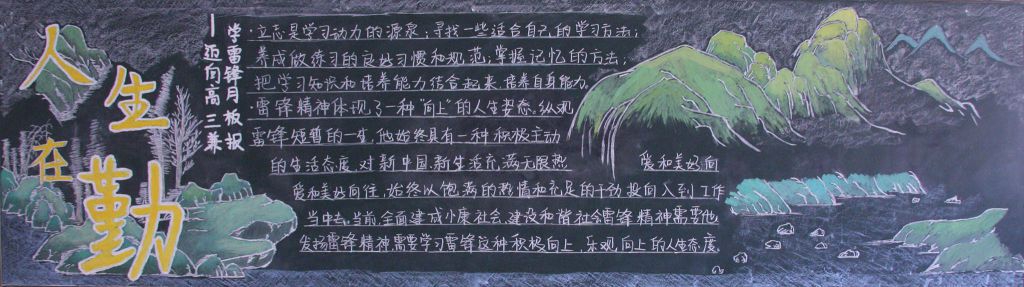 人生在勤
—迈向高三兼
学雷锋月板报
·立志是学习动力的源泉;寻找一些适合自己的学习方法;
养成做练习的良好习惯和规范;掌握记忆的方法;
把学习知识和培养能力结合起来,培养自身能力。
·雷锋精神体现了一种"向上"的人生姿态。纵观
雷锋短暂的一生,他始终具有一种积极主动
的生活态度,对新中国、新生活充满无限热 爱和美好向
爱和美好向往,始终以饱满的热情和充足的干劲投向入到工作
当中去。当前,全面建成小康社会,建设和谐社会雷锋精神需要他
发扬雷锋精神需要学习雷锋这种积极向上、乐观向上的人生态度。